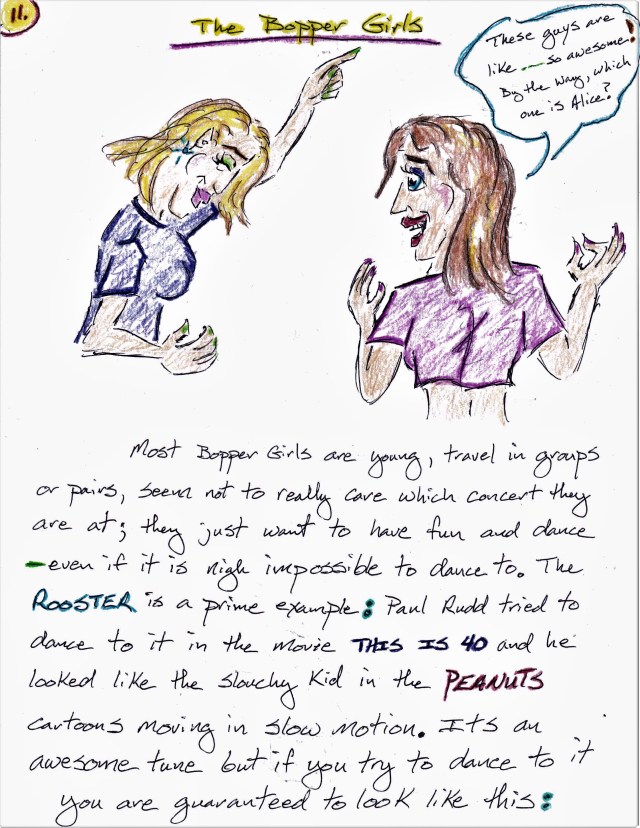 11.
The Bopper Girls
These guys are
like — so awesome!
By the way, which
one is Alice?
Most Bopper Girls are young, travel in groups
or pairs, seem not to really care which concert they
are at; they just want to have fun and dance
-even if it is nigh impossible to dance to. The
ROOSTER is a prime example: Paul Rudd tried to
dance to it in the movie THIS IS 40 and he
looked like the slouchy kid in the PEANUTS
cartoons moving in slow motion. Its an
awesome tune but if you try to dance to it
you are guaranteed to look like this: